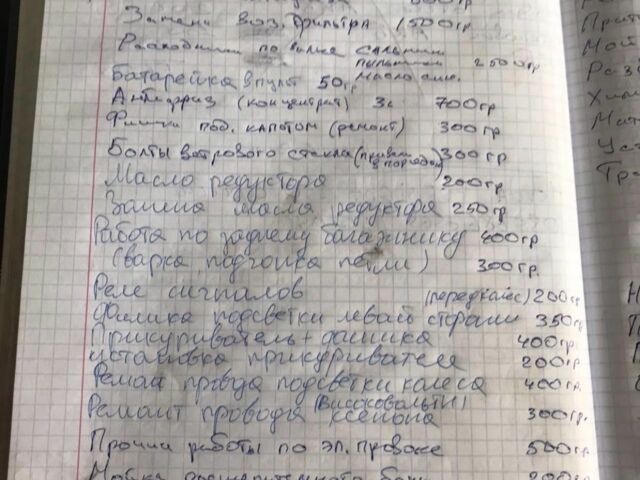 800гр
Замена воз. фильтра 1500гр
Расходники по вилке сальники
пыльники 2500гр
масло аmo.
Батарейка в пульт 50гр
Антифриз (концентрат) 3л 700гр
Фишки под. капотом (ремонт) 300гр
Болты ветрового стекла (привел в порядок) 300гр
Масло редуктора 200гр
Замена масла редуктора 250гр
Работа по заднему багажнику 400гр
(варка, подгонка петли) 300гр.
Реле сигналов (перед колес) 200гр
Фишка подсветки левой стороны 350гр
Прикуриватель + фишка 400гр.
Установка прикуривателя 200гр
Ремонт провода подсветки колеса 400гр.
(Высоковольтн)
Ремонт провода ксенона 300гр.
Прочии работы по эл. провоке 500гр
Мойка расширительного бачк 200гр
При
Мой
Разб
Хим
Мат
Уст
Тра